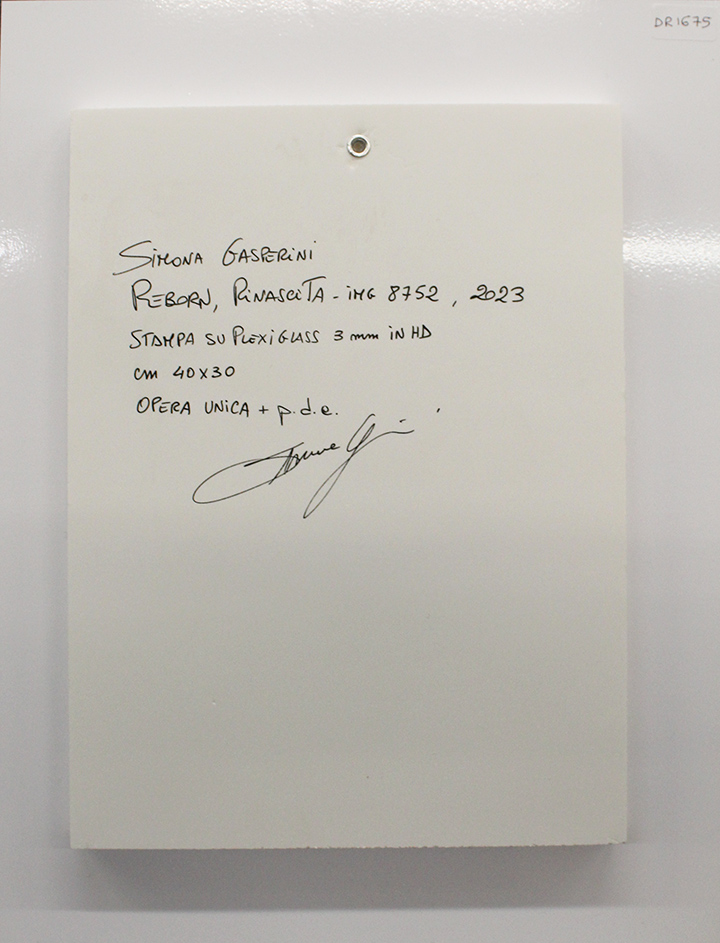 DR1675
Simona Gasperini
Reborn, Rinascita - img 8752, 2023
Stampa su Plexiglass 3 mm in HD
cm 40x30
Opera unica + p.d.e.